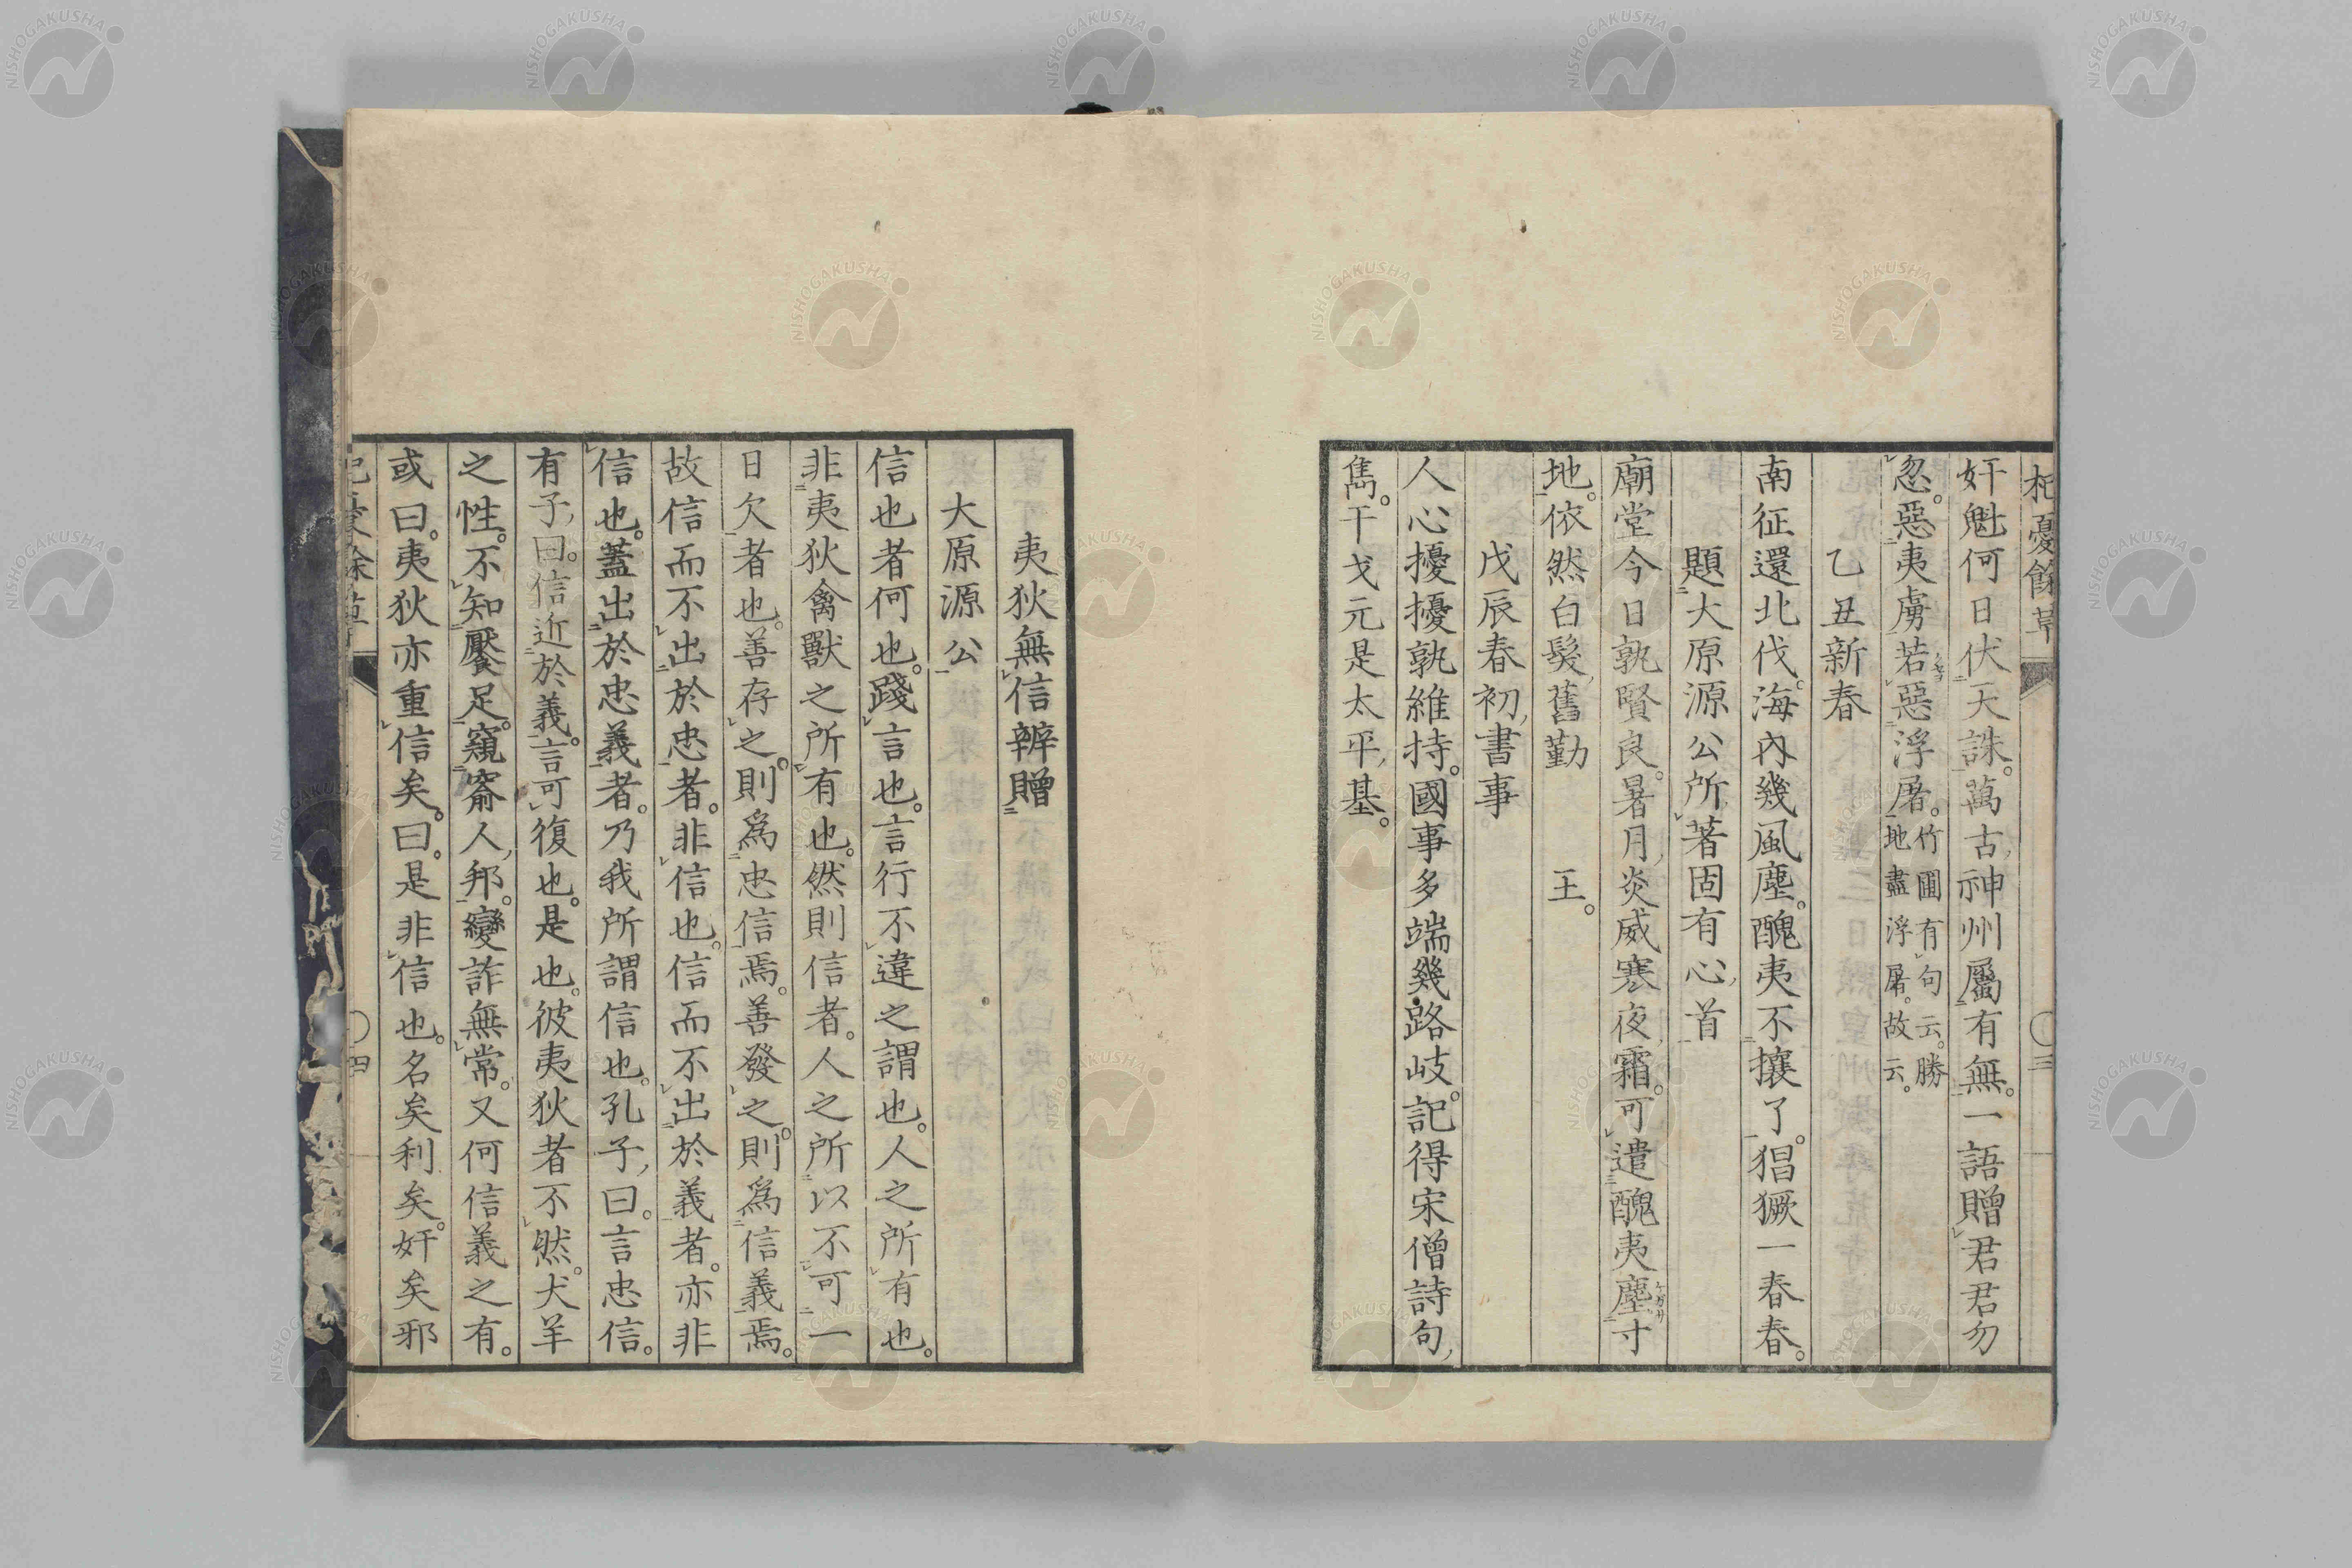 杞憂餘草 三
奸魁何日伏天誅。萬古神州屬有無。一語贈君君勿
忽。惡夷虜若惡浮屠。竹圃有句云。勝地盡浮屠。故云。
乙丑新春
南征還北伐。海內幾風塵。醜夷不攘了。猖獗一春春。
題大原源公所著固有心首
廟堂今日孰賢良。暑月炎威寒夜霜。可遣醜夷塵寸
地。依然白髮舊勤 王。
戊辰春初書事
人心擾擾孰維持。國事多端幾路岐。記得宋僧詩句
雋。干戈元是太平基。
夷狄無信辨贈
大原源公
信也者何也。踐言也。言行不違之謂也。人之所有也。
非夷狄禽獸之所有也。然則信者。人之所以不可一
日欠者也。善存之。則爲忠信焉。善發之。則爲信義焉。
故信而不出於忠者。非信也。信而不出於義者。亦非
信也。蓋出於忠義者。乃我所謂信也。孔子曰。言忠信。
有子曰。信近於義。言可復也。是也。彼夷狄者不然。犬羊
之性。不知饜足。窺窬人邦。變詐無常。又何信義之有。
或曰。夷狄亦重信矣。曰。是非信也。名矣利矣。奸矣邪
四
NISHOGAKUSHA